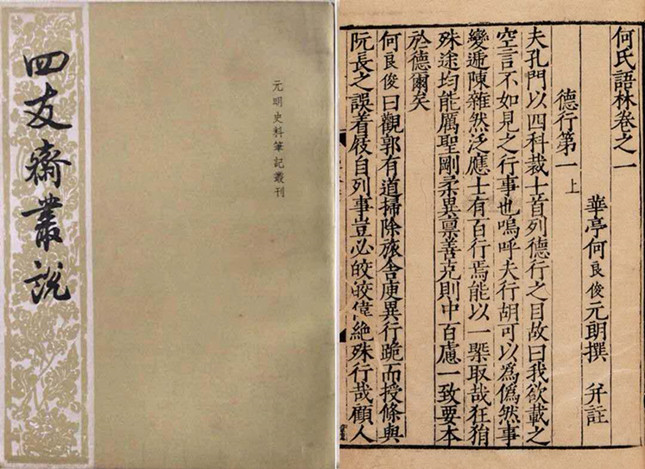 四友齋叢說
元明史料筆記叢刊
何氏語林卷之一
華亭何良俊元朗撰 幷註
德行第一上
夫孔門以四科裁士首列德行之目故曰我欲載之
空言不如見之行事也嗚呼夫行胡可以為僞然事
變遞陳雜然泛應士有百行焉能以一槩取哉狂狷
殊途均能厲聖剛柔異禀善克則中百慮一致要本
於德爾矣
何良俊曰觀郭有道掃除旅舍庾異行跪而授條與
阮長之誤着屐自列事豈必皎皎偉絶殊行哉顧人